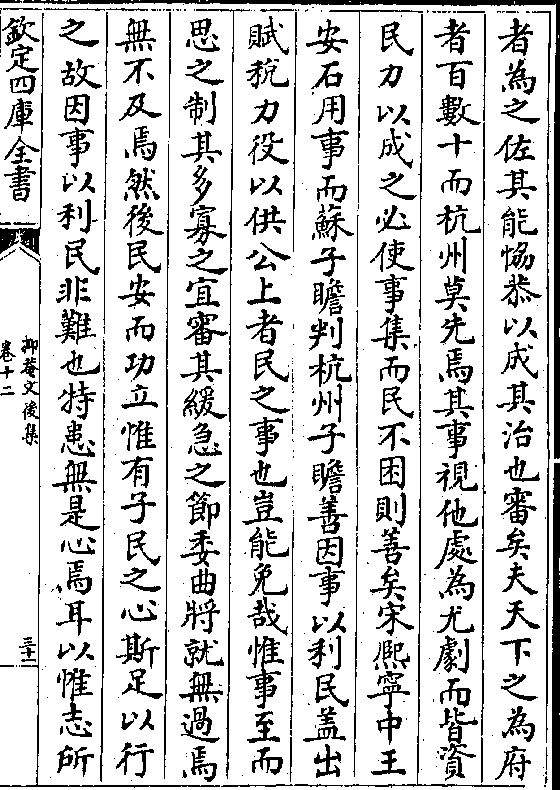 者為之佐其能恊恭以成其治也審矣夫天下之為府
者百數十而杭州莫先焉其事視他處為尤劇而皆資
民力以成之必使事集而民不困則善矣宋熈寧中王
安石用事而蘇子瞻判杭州子瞻善因事以利民盖出
賦稅力役以供公上者民之事也豈能免哉惟事至而
思之制其多寡之宜審其緩急之節委曲將就無過焉
無不及焉然後民安而功立惟有子民之心斯足以行
之故因事以利民非難也特患無是心焉耳以惟志所
欽定四庫全書
抑菴文後集
卷十二
三十二